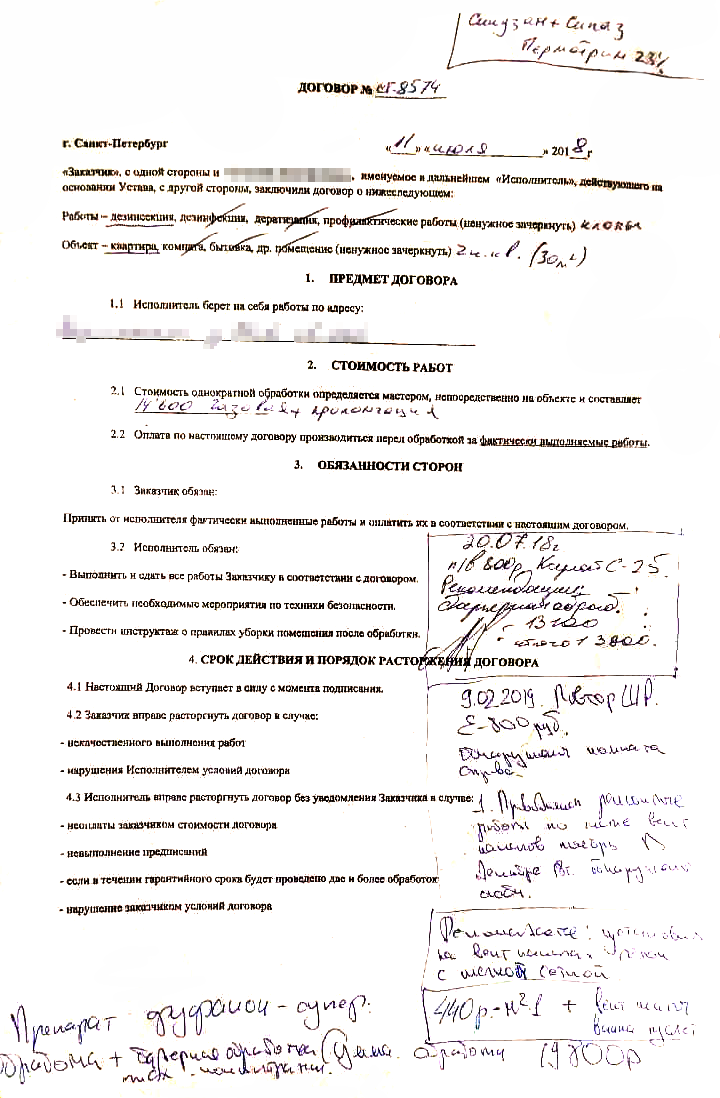 Синузан + Сипаз
Перметрин 23%
ДОГОВОР № СГ-8574
г. Санкт-Петербург
«11» «июля» 2018г
«Заказчик», с одной стороны и , именуемое в дальнейшем «Исполнитель», действующего на
основании Устава, с другой стороны, заключили договор о нижеследующем:
Работы – дезинсекция, дезинфекция, дератизация, профилактические работы (ненужное зачеркнуть) клопы
Объект – квартира, комната, бытовка, др. помещение (ненужное зачеркнуть) 2к.кв. (30м²)
1. ПРЕДМЕТ ДОГОВОРА
1.1 Исполнитель берет на себя работы по адресу:
2. СТОИМОСТЬ РАБОТ
2.1 Стоимость однократной обработки определяется мастером, непосредственно на объекте и составляет
14'800 газовая + пролонгация
2.2 Оплата по настоящему договору производиться перед обработкой за фактически выполняемые работы.
3. ОБЯЗАННОСТИ СТОРОН
3.1 Заказчик обязан:
Принять от исполнителя фактически выполненные работы и оплатить их в соответствии с настоящим договором.
3.2 Исполнитель обязан:
- Выполнить и сдать все работы Заказчику в соответствии с договором.
- Обеспечить необходимые мероприятия по техники безопасности.
- Провести инструктаж о правилах уборки помещения после обработки.
20.07.18г
п/в 800р С-25.
Рекомендации
Барьерная обраб.
- 13100
- итого 13800.
4. СРОК ДЕЙСТВИЯ И ПОРЯДОК РАСТОРЖЕНИЯ ДОГОВОРА
4.1 Настоящий Договор вступает в силу с момента подписания.
4.2 Заказчик вправе расторгнуть договор в случае:
- некачественного выполнения работ
- нарушения Исполнителем условий договора
4.3 Исполнитель вправе расторгнуть договор без уведомления Заказчика в случае:
- неоплаты заказчиком стоимости договора
- невыполнение предписаний
- если в течении гарантийного срока будет проведено две и более обработок
- нарушение заказчиком условий договора
9.02.2019. Повтор
800 руб.
комната
справа.
1. Проводились
работы по вент
каналов ноябрь
Декабре
Рекомендate: установка
на вент канал
с мелкой сеткой
440р.-№1 + вент
Препарат фуфанон-супер.
Обработка + барьерная обработка (Цена обработки 19800р